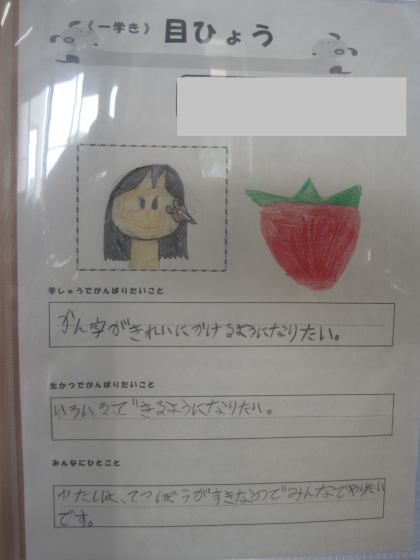 （一学き） 目ひょう
学しゅうでがんばりたいこと
かん字がきれいにかけるようになりたい。
生かつでがんばりたいこと
いろいろできるようになりたい。
みんなにひとこと
わたしは、てつぼうがすきなのでみんなでやりたい
です。